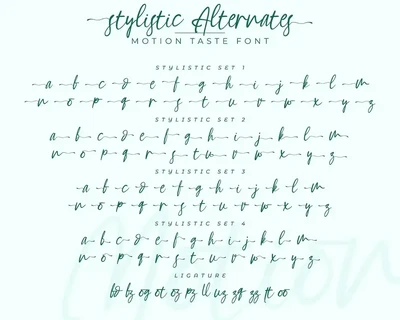 stylistic Alternates
MOTION TASTE FONT
STYLISTIC SET 1
a b c d e f g h i j k l m
n o p q r s t u v w x y z
STYLISTIC SET 2
a b c d e f g h i j k l m
n o p q r s t u v w x y z
STYLISTIC SET 3
a b c d e f g h i j k l m
n o p q r s t u v w x y z
STYLISTIC SET 4
a b c d e f g h i j k l m
n o p q r s t u v w x y z
LIGATURE
ll tt oo
Motion